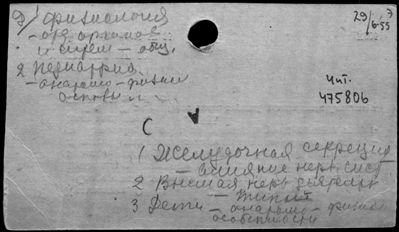 1 физиология
- отд. органов
и систем - общ.
2 педиатрия
- анатомо - физиол
основы
29/6-55
Чит.
475806
С
1 Желудочная секреция
- влияние нерв. сист
2 Высшая нерв. деятельн
- типы
3 Дети - анатомо - физиол
особенности